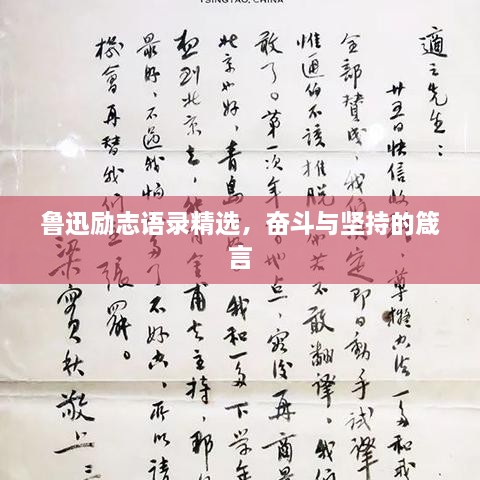 TSINGTAO, CHINA
適之先生：
廿五日快信收到，尊擬办法一多和我
全部贊成，我們定即日動手試譯
惟通伯不該推脱，若不敢翻譯，我們
敢了。第一次年地点，容後再商
北京也好，青島我和一多下学年
想到北京去，甫去主持，那
最好，不過我怕了不好办，所以請
機會再替我們主張罷。
梁實秋敬上 三
鲁迅励志语录精选，奋斗与坚持的箴
言